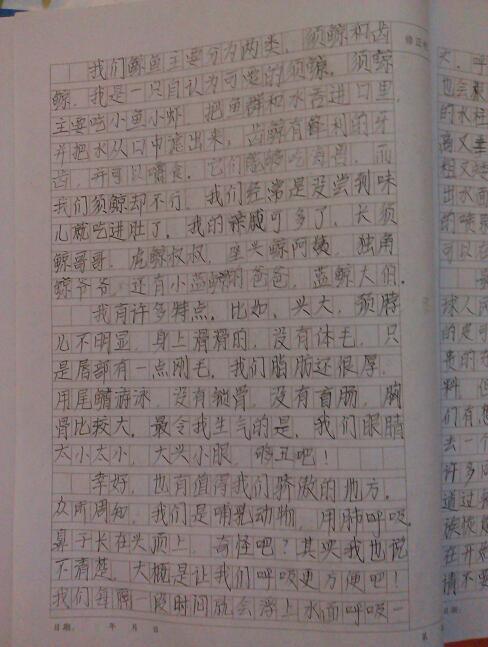 修正
我们鲸鱼主要分为两类，须鲸和齿
鲸。我是一只自认为可爱的须鲸。须鲸
主要吃小鱼小虾，把鱼群和水吞进口里，
并把水从口中滤出来，齿鲸有锋利的牙
齿，并可以嚼食。它们能吃海兽。而
我们须鲸却不行。我们经常是没尝到味
儿就吃进肚了。我的亲戚可多了，长须
鲸哥哥，虎鲸叔叔，坐头鲸阿姨，独角
鲸爷爷，还有小蓝鲸的爸爸，蓝鲸大伯。
我有许多特点。比如，头大，颈脖
儿不明显，身上滑滑的，没有体毛，只
是唇部有一点刚毛。我们脂肪还很厚，
用尾鳍游泳，没有锁骨，没有盲肠，胸
骨比较大。最令我生气的是，我们眼睛
太小太小，大头小眼，够丑吧！
幸好，也有值得我们骄傲的地方。
众所周知，我们是哺乳动物，用肺呼吸。
鼻子长在头顶上，奇怪吧？其实我也说
不清楚，大概是让我们呼吸更方便吧！
我们每隔一段时间就会浮上水面呼吸一
日期： 年 月 日
第
大，呼
也会
的水柱
高又
粗又
出水面
的喷
可以
球人
的是可
贵的
料，但
们有
去一个
许多
通过
族
在开
请不要
日期：